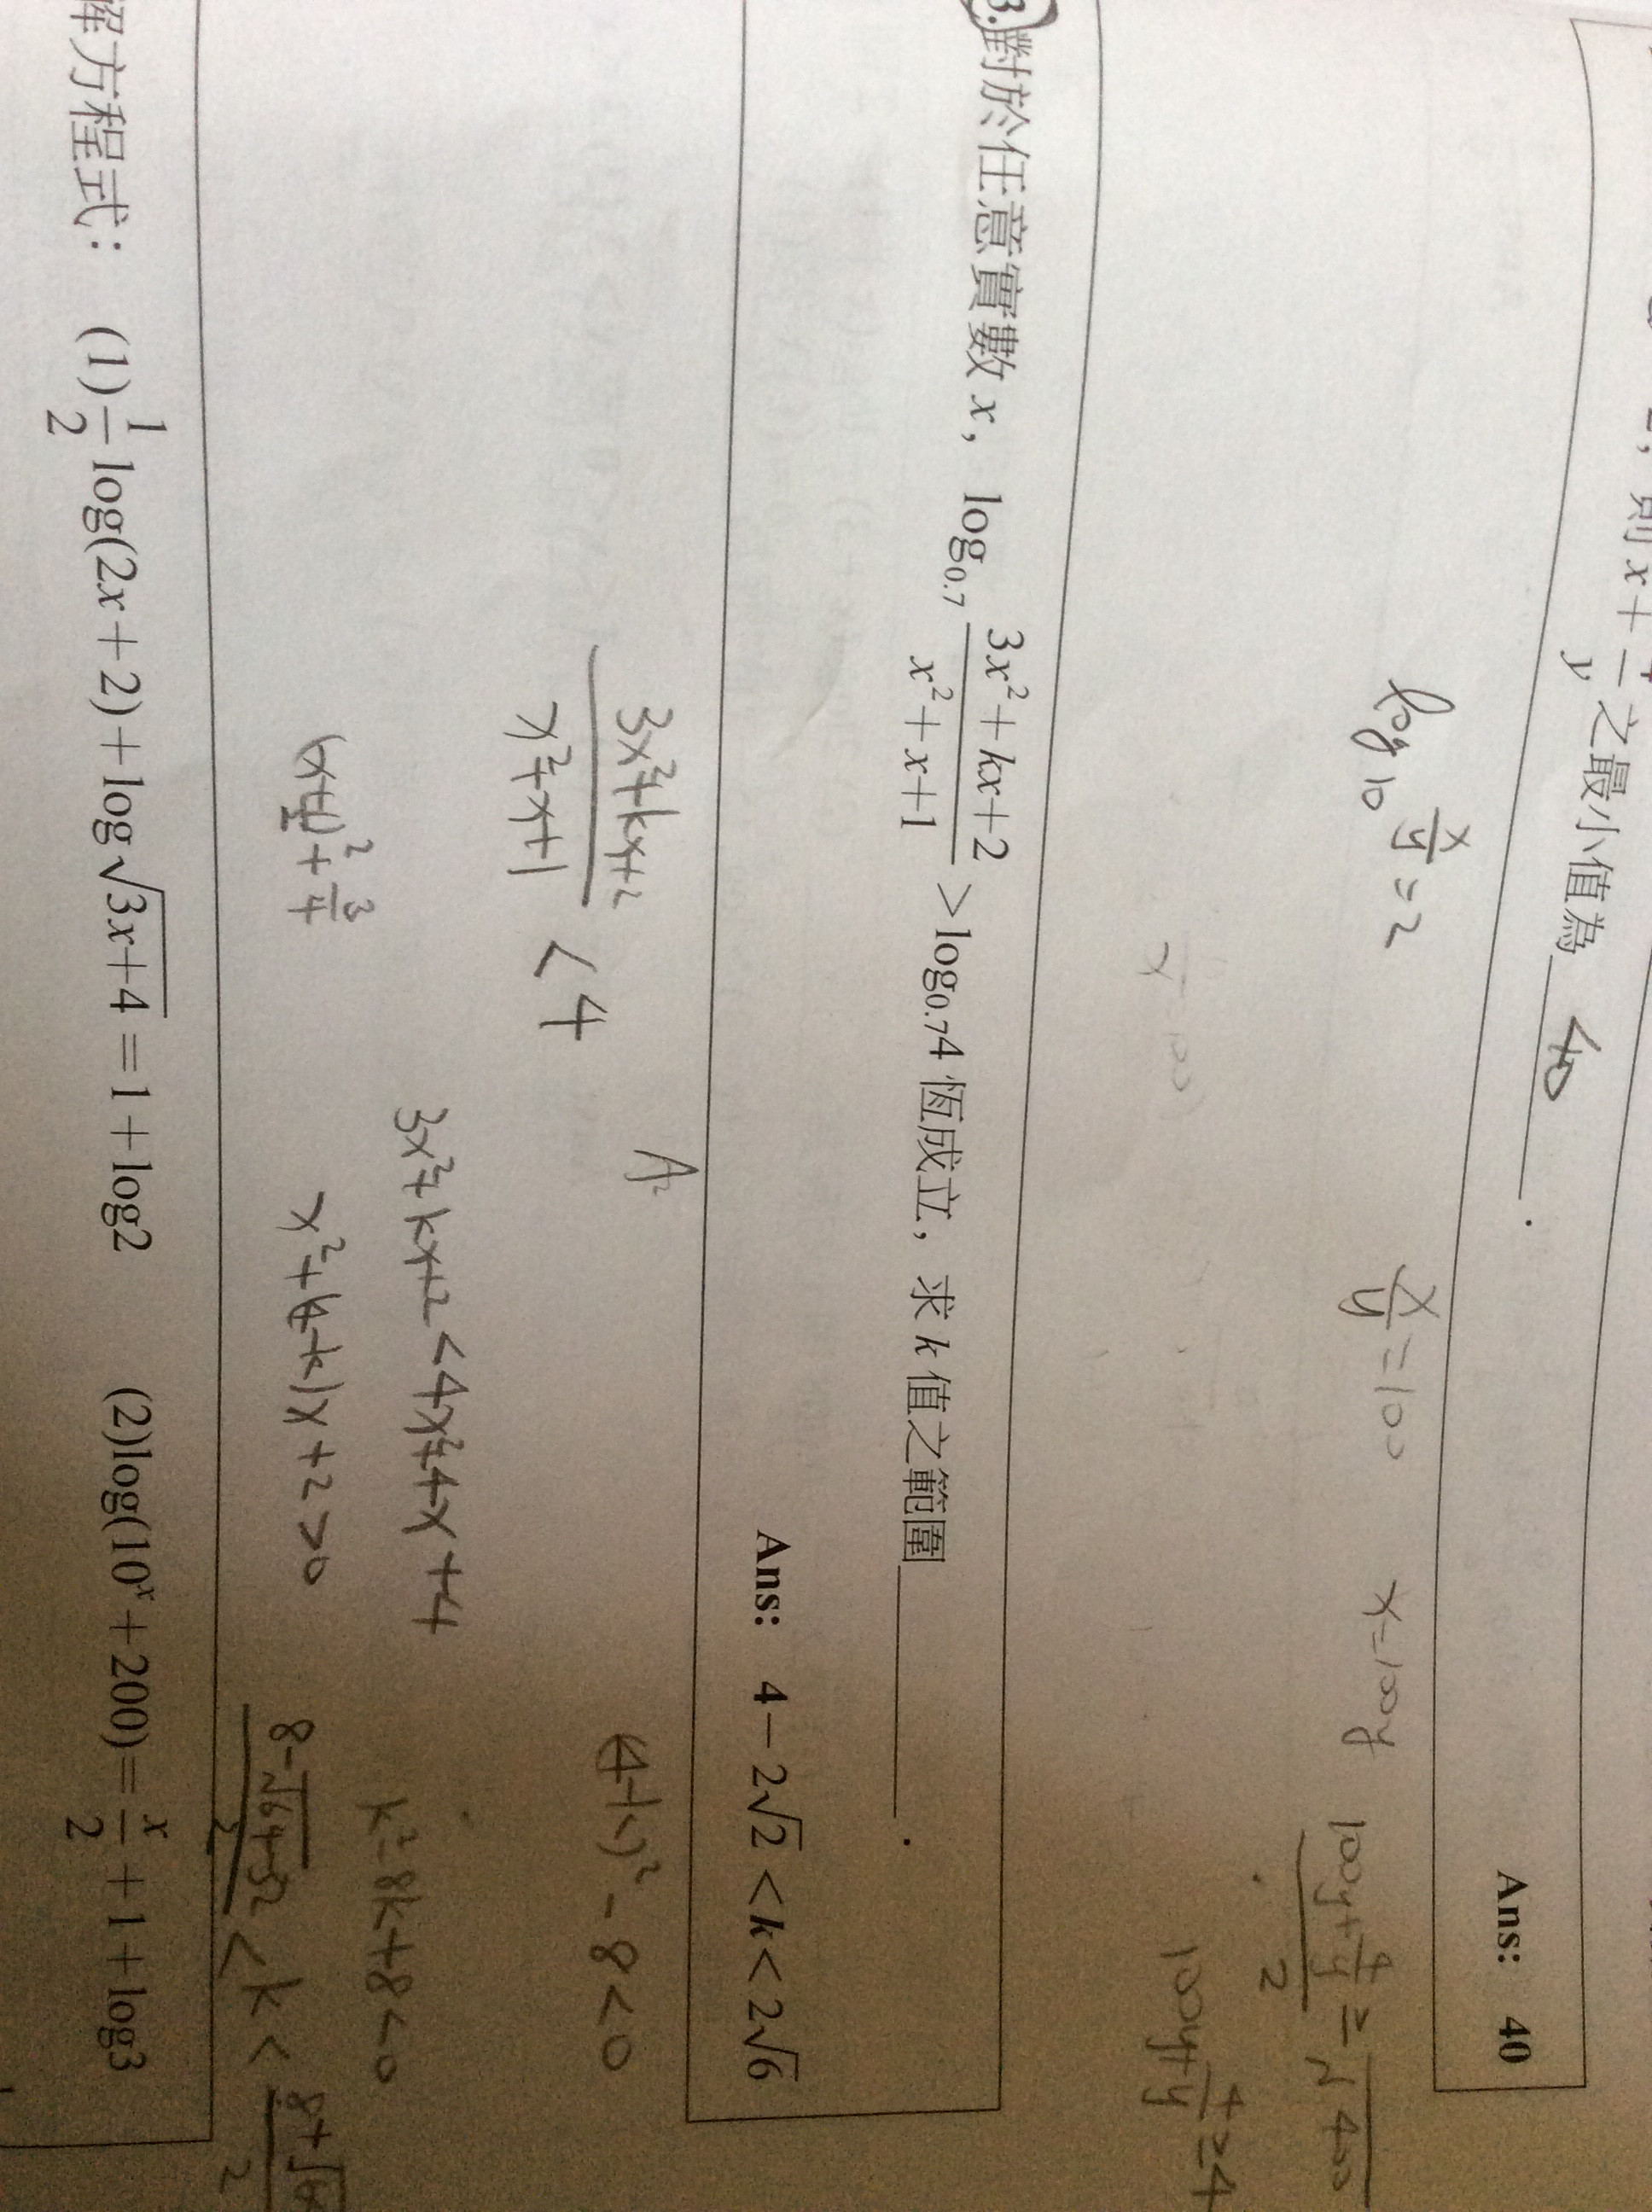 則 x + 4/y 之最小值為 40 .
Ans: 40
log10 x/y = 2
x/y = 100
x=100y
(100y + 4/y)/2 ≥ √400
100y + 4/y ≥ 4
3.對於任意實數 x, log₀.₇ (3x²+kx+2)/(x²+x+1) > log₀.₇4 恆成立, 求 k 值之範圍 .
Ans: 4−2√2 < k < 2√6
(3x²+kx+2)/(x²+x+1) < 4
3x²+kx+2 < 4x²+4x+4
x²+(4-k)x+2>0
(4-k)²-8<0
k²-8k+8<0
(8-√64-32)/2 < k < 8+√
解方程式: (1) 1/2 log(2x+2)+log√(3x+4)=1+log2 (2)log(10ˣ+200)= x/2 +1+log3